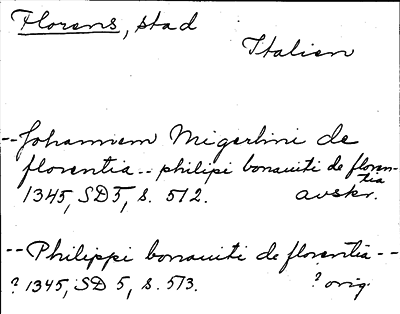 Florens, stad
Italien
-- Johannem Migerlini de
florentia -- philipi bonauiti de floren-
tia
1345, SD 5, s. 512. avskr.
-- Philippi bonauiti de florentia --
? 1345, SD 5, s. 513. ? orig.